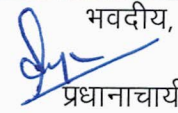 भवदीय,
प्रधानाचार्य